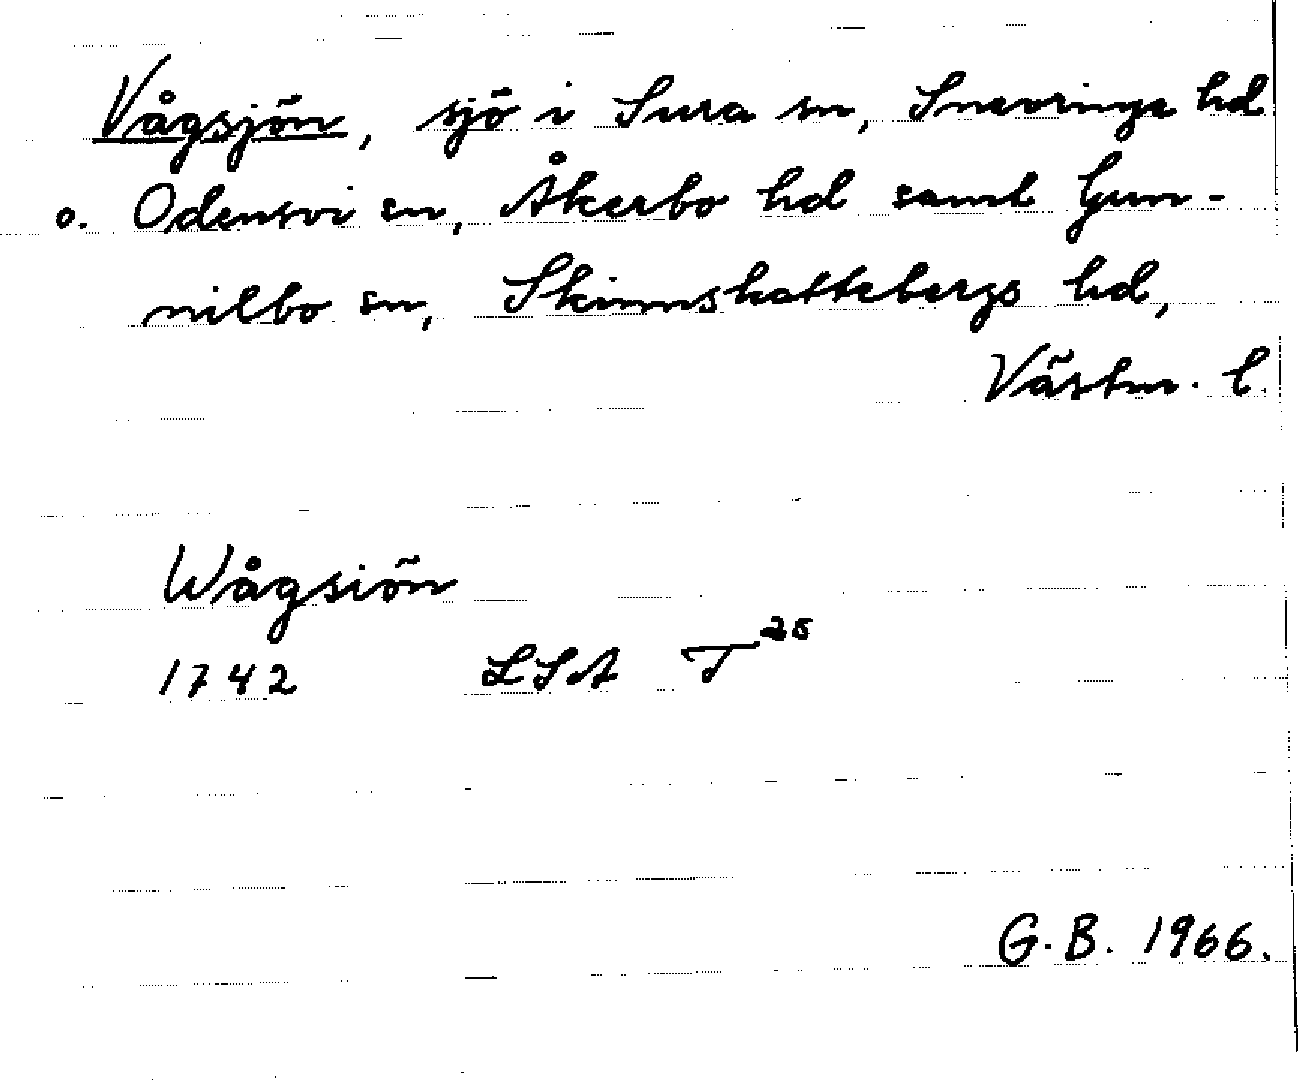 Vågsjön, sjö i Sura sn, Snevringe hd
o. Odensvi sn, Åkerbo hd samt Gun-
nilbo sn, Skinnskattebergs hd,
Västm. l.
Wågsiön
1742 LSA T²⁵
G.B. 1966.